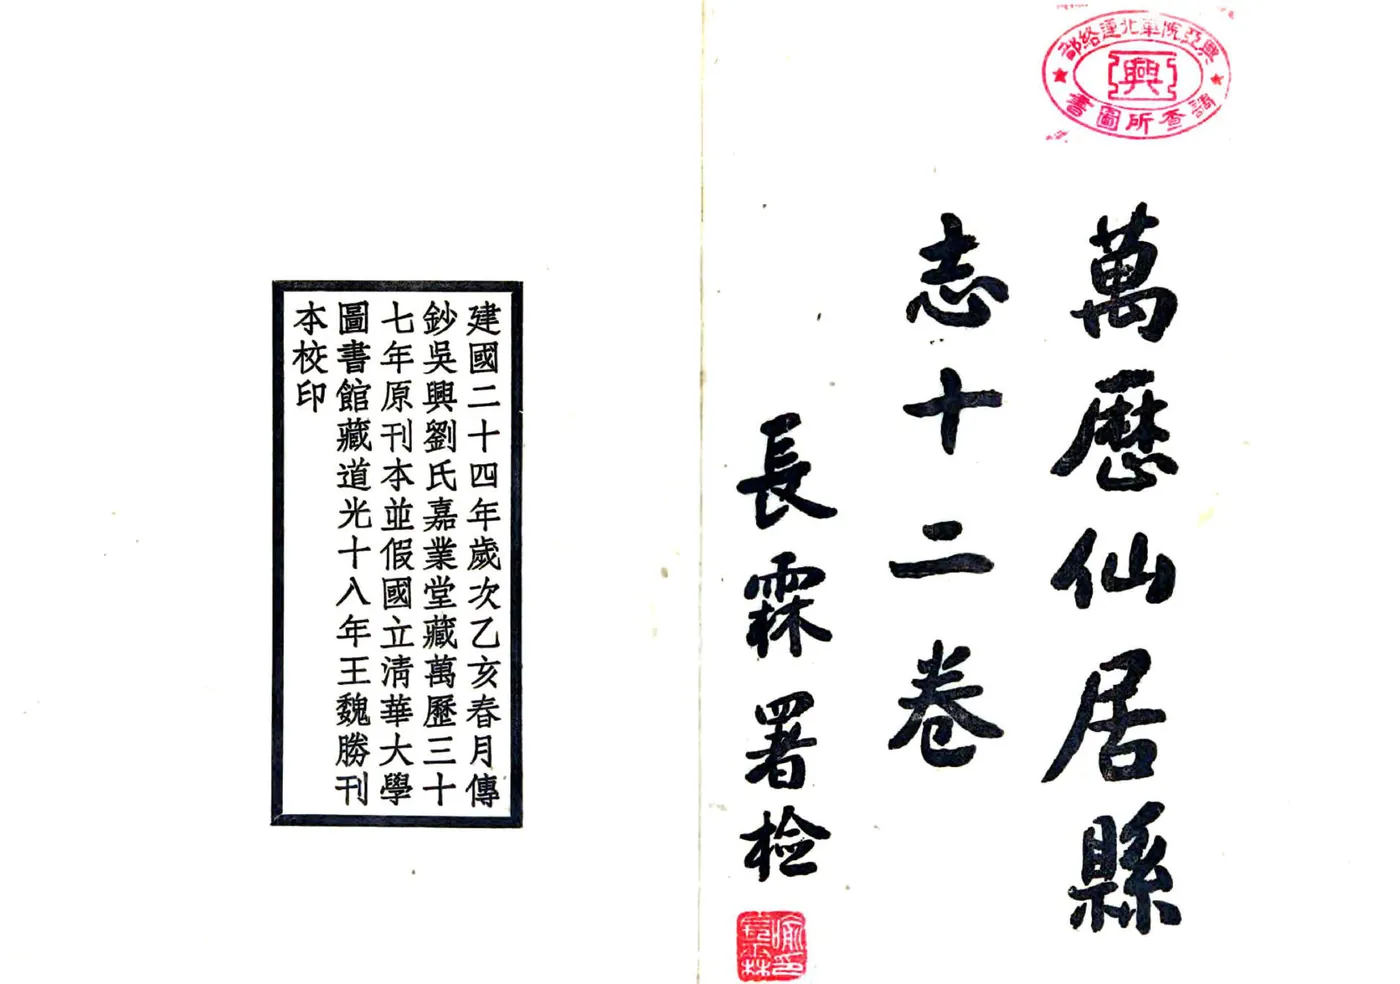 興亞院華北連絡部
興
調查所圖書
萬歷仙居縣
志十二卷
長霖署檢
喻長霖印
建國二十四年歲次乙亥春月傳
鈔吳興劉氏嘉業堂藏萬歷三十
七年原刊本並假國立清華大學
圖書館藏道光十八年王魏勝刊
本校印